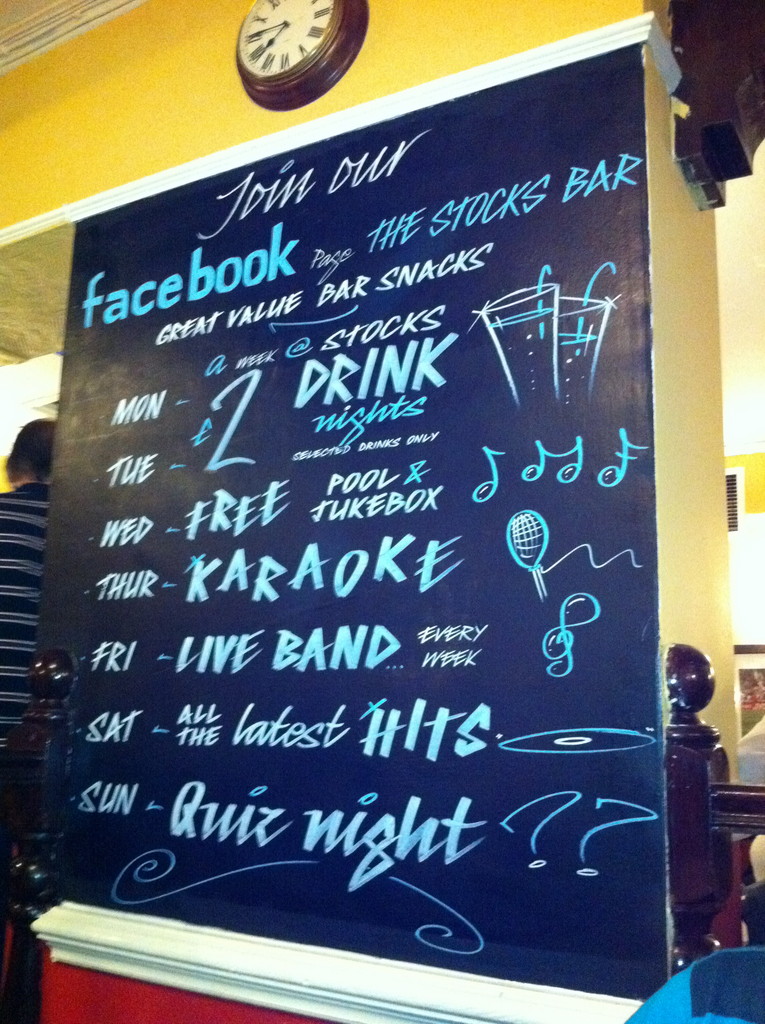 Join our
facebook Page THE STOCKS BAR
GREAT VALUE BAR SNACKS
a WEEK @ STOCKS
MON - £2 DRINK
nights
SELECTED DRINKS ONLY
TUE -
WED - FREE POOL &
JUKEBOX
THUR - KARAOKE
FRI - LIVE BAND... EVERY
WEEK
SAT - ALL
THE latest HITS
SUN - Quiz night ??